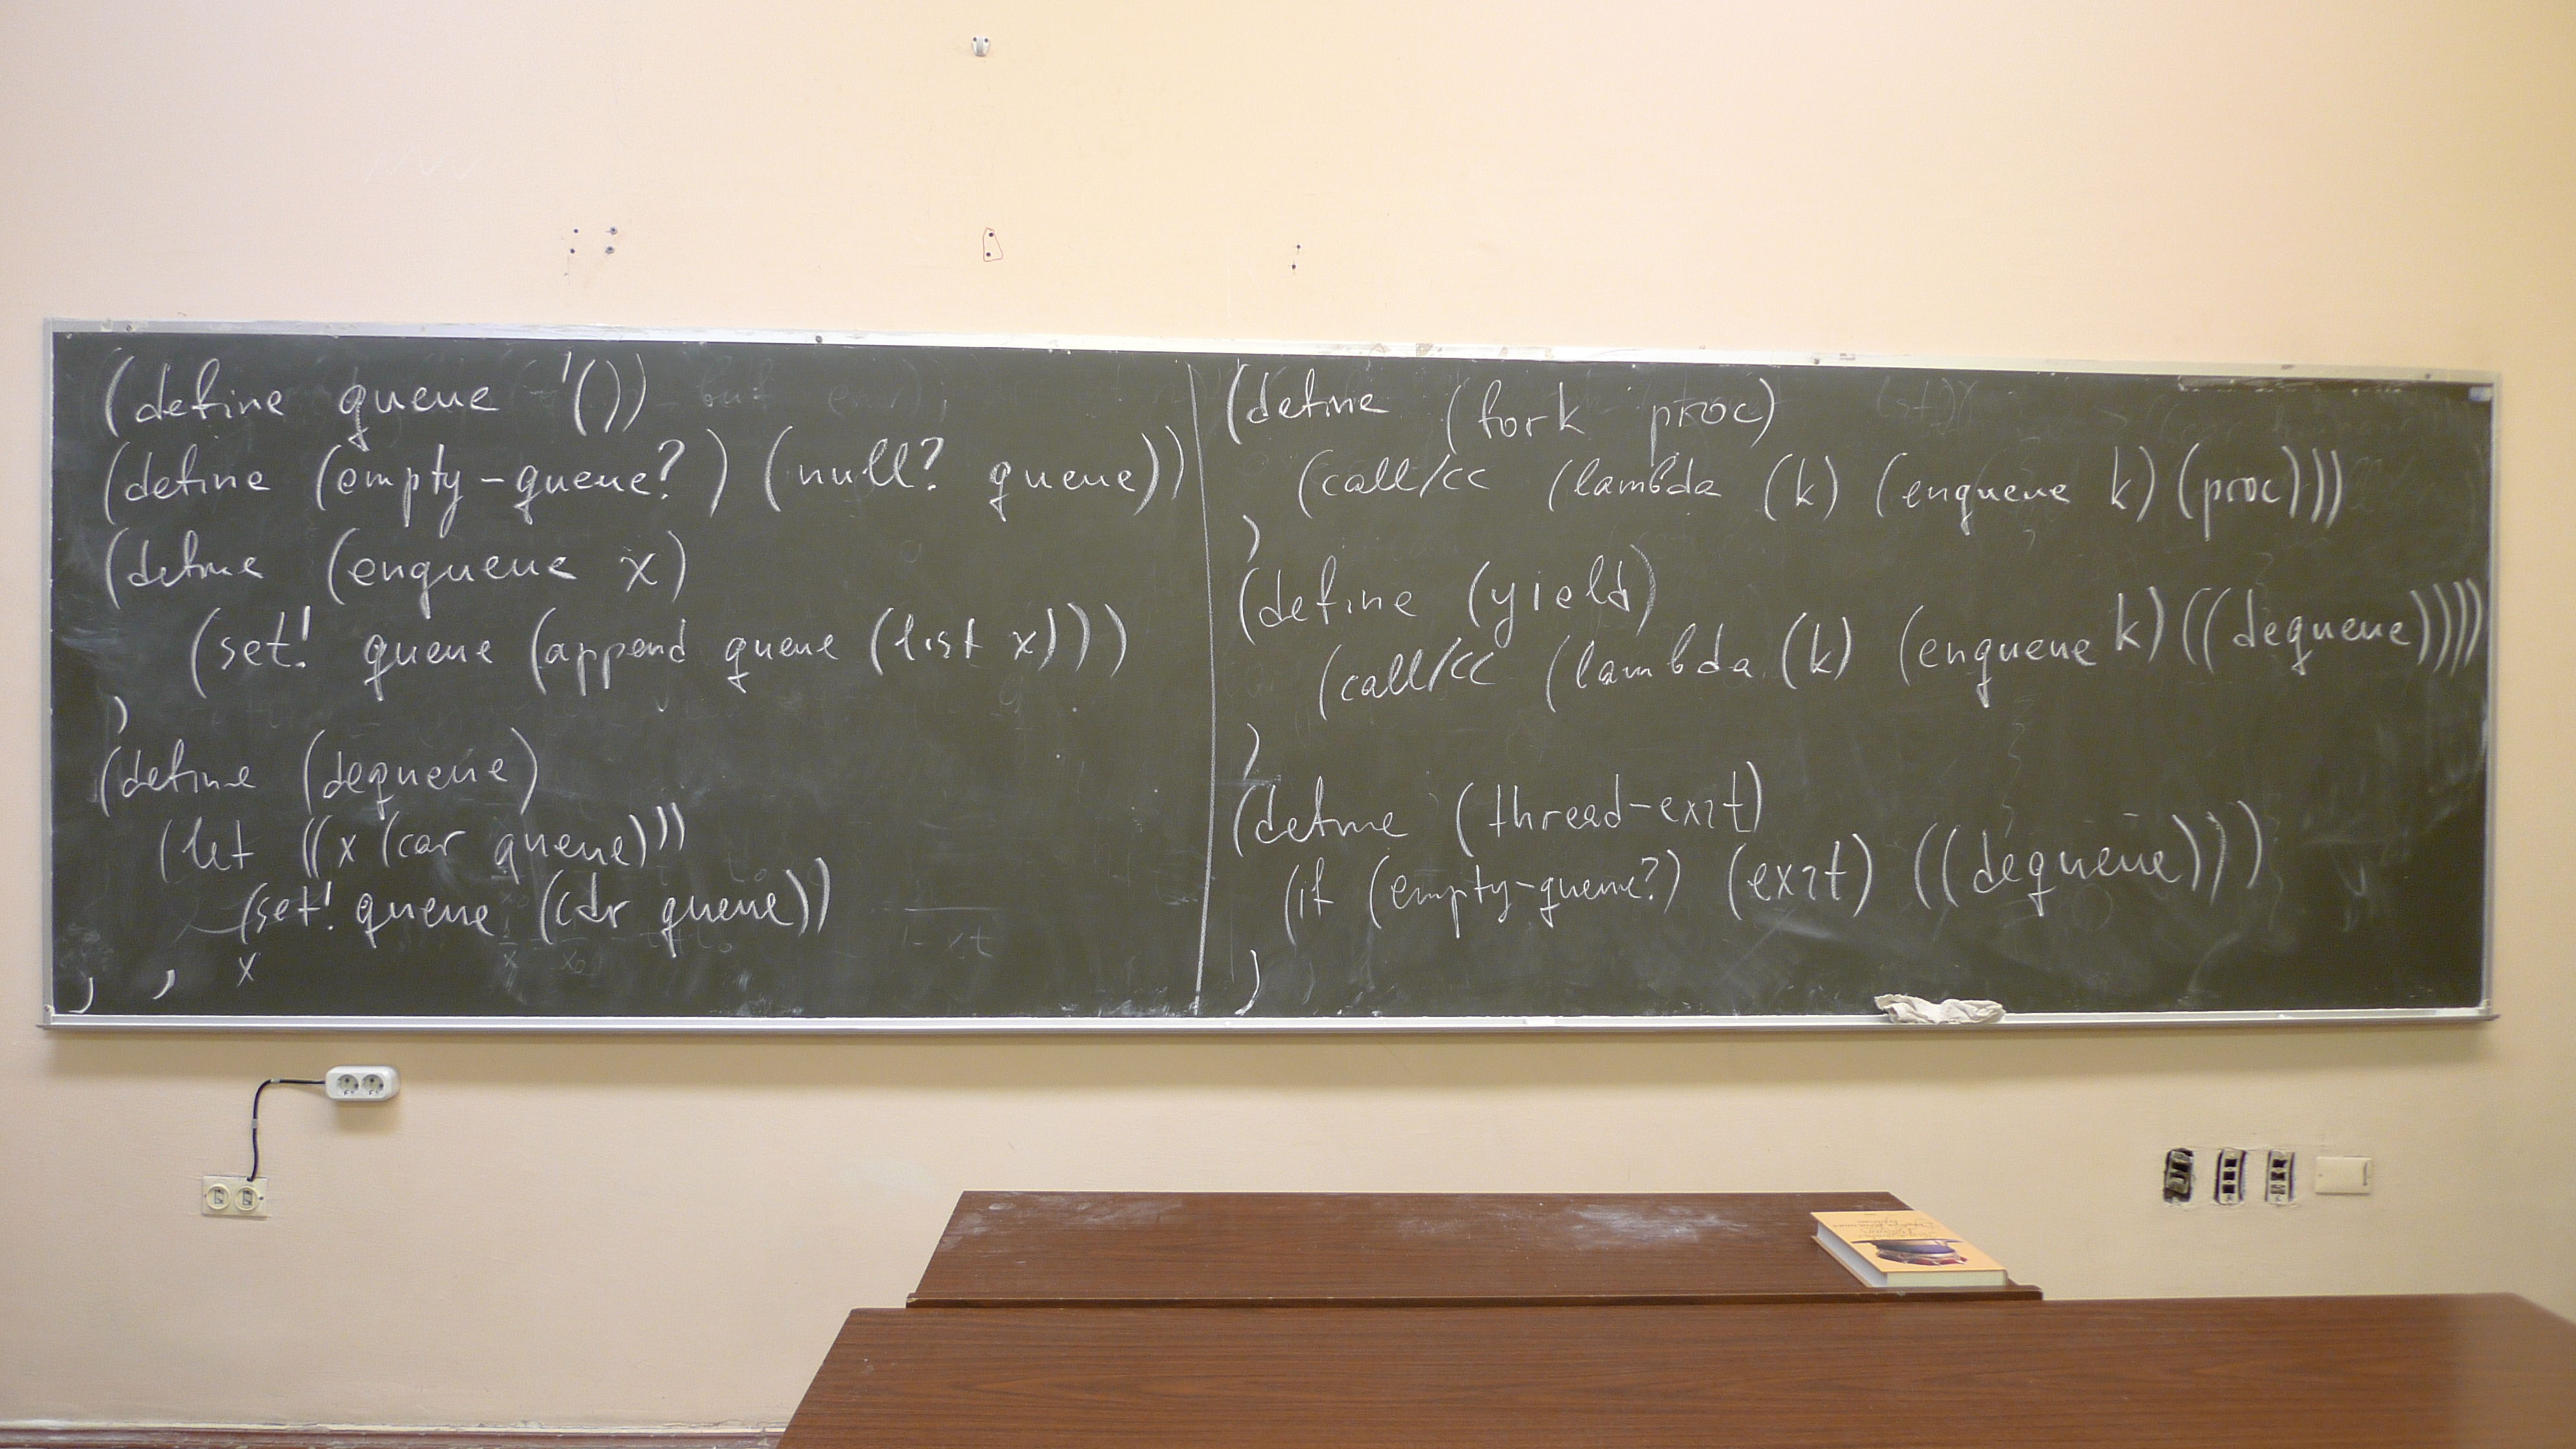 (define queue '())
(define (empty-queue?) (null? queue))
(define (enqueue x)
(set! queue (append queue (list x)))
)
(define (dequeue)
(let ((x (car queue)))
(set! queue (cdr queue))
x
) )
(define (fork proc)
(call/cc (lambda (k) (enqueue k) (proc)))
)
(define (yield)
(call/cc (lambda (k) (enqueue k) ((dequeue))))
)
(define (thread-exit)
(if (empty-queue?) (exit) ((dequeue)))
)